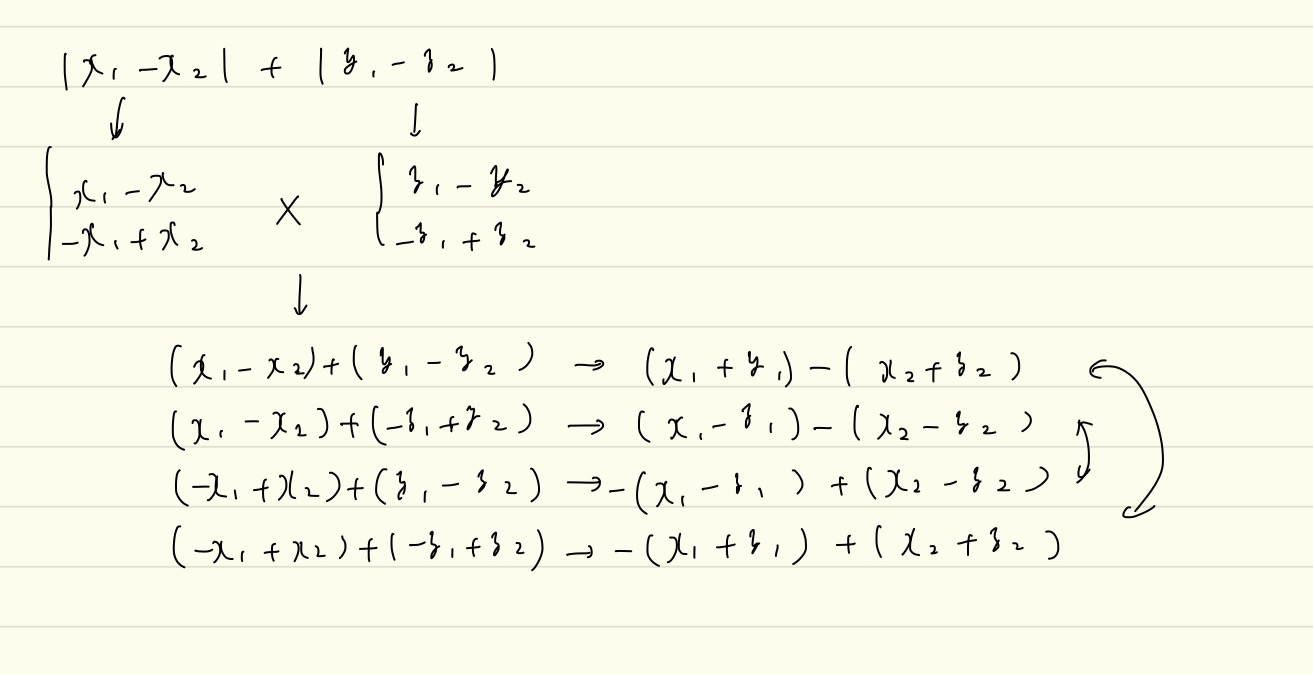 |x₁ - x₂| + |y₁ - y₂|
↓ ↓
{ x₁ - x₂ × { y₁ - y₂
-x₁ + x₂ -y₁ + y₂
↓
(x₁ - x₂) + (y₁ - y₂) → (x₁ + y₁) - (x₂ + y₂)
(x₁ - x₂) + (-y₁ + y₂) → (x₁ - y₁) - (x₂ - y₂)
(-x₁ + x₂) + (y₁ - y₂) → -(x₁ - y₁) + (x₂ - y₂)
(-x₁ + x₂) + (-y₁ + y₂) → -(x₁ + y₁) + (x₂ + y₂)